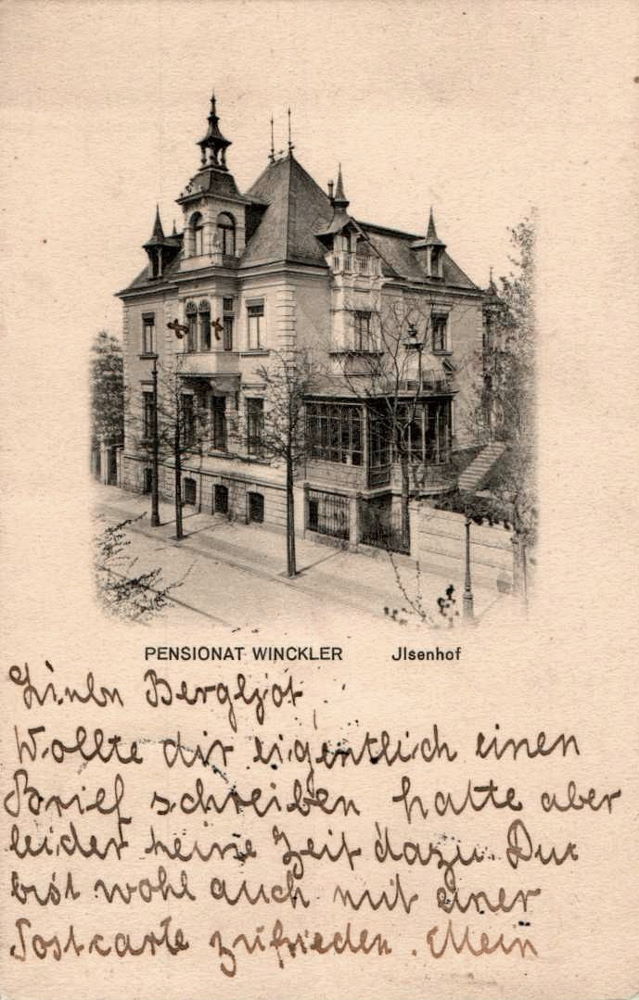 PENSIONAT WINCKLER Jlsenhof
Liebe Bergljot
Wollte dir eigentlich einen
Brief schreiben hatte aber
leider keine Zeit dazu. Du
bist wohl auch mit einer
Postkarte zufrieden. Mein